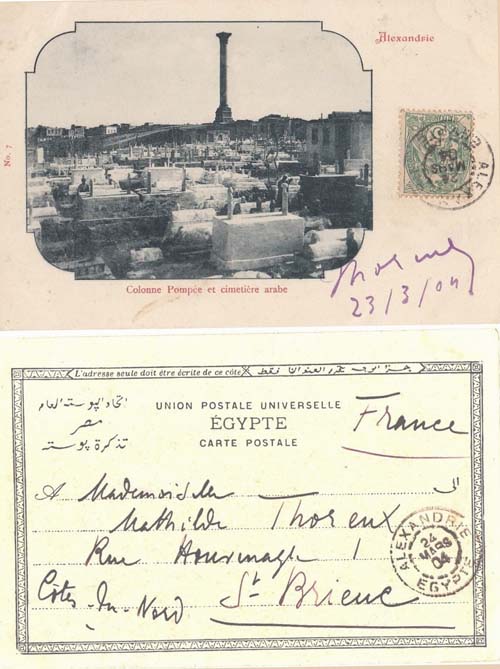 Alexandrie
No. 7
Colonne Pompée et cimetière arabe
23/3/04
L'adresse seule doit être écrite de ce côté
اتحاد البوستة العام
مصر
تذكرة بوستة
UNION POSTALE UNIVERSELLE
ÉGYPTE
CARTE POSTALE
France
A Mademoiselle
الى
Mathilde Thoreux
Rue 1
Côtes-du-Nord
St Brieuc
ALEXANDRIE
24
MARS
04
EGYPTE